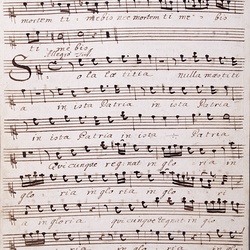 mortem ti mebis nec mortem ti me bis
ti me bis
Allegro
Sola læ titia nulla mæsti ti
a in ista Patria in ista Patria
in ista Patria in ista Patria
Quicunque regnat in glo ria in
glo ria in gloria in glo ri
a in gloria quicunque regnat in glo
ria in glo ria in